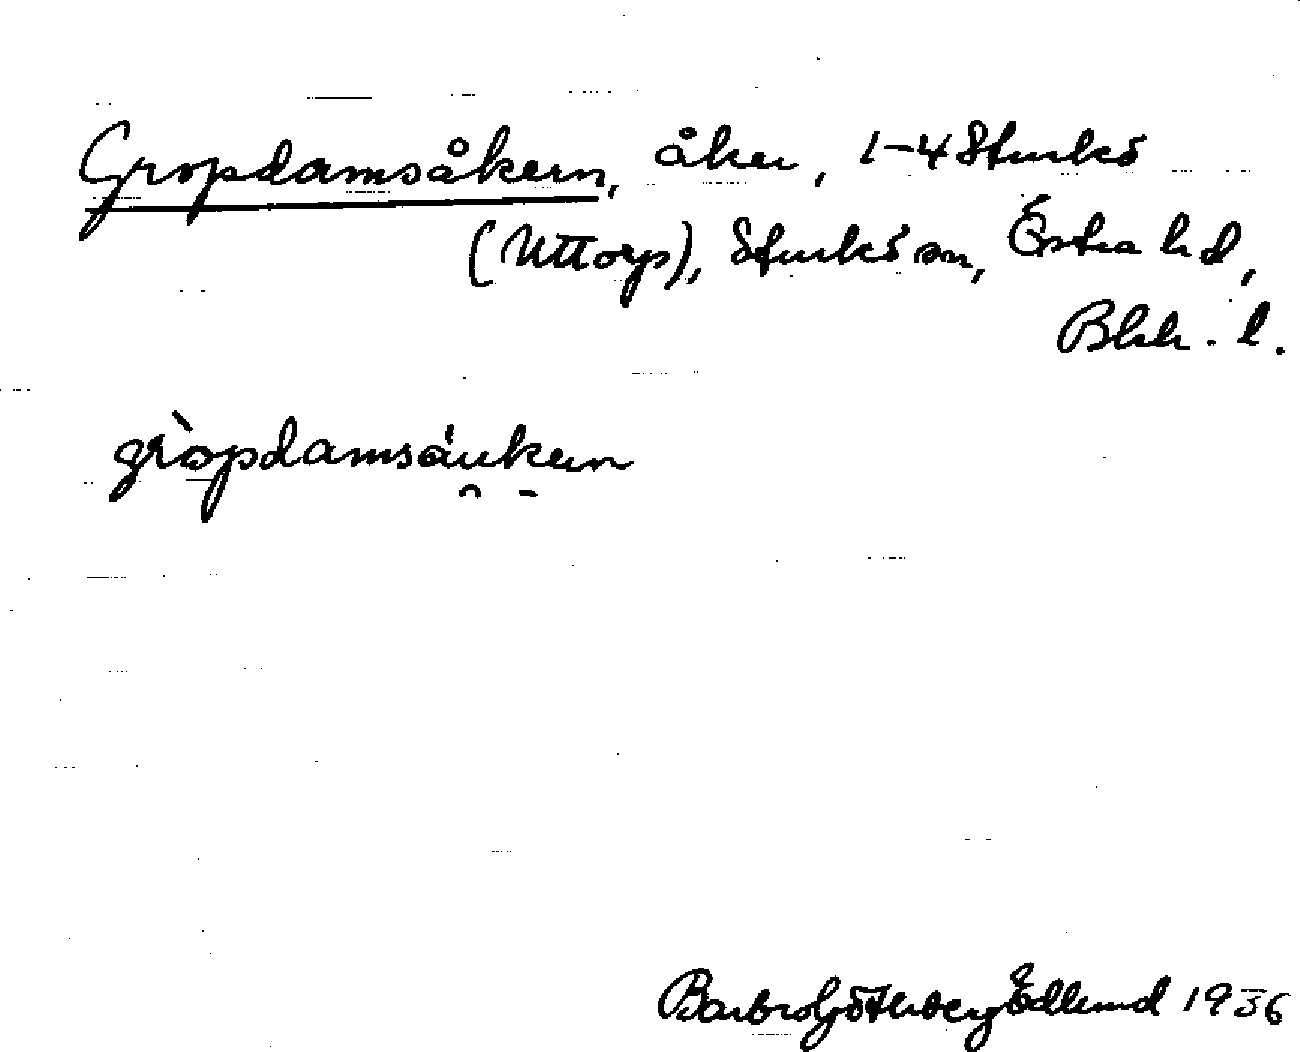 Gropdamsåkern, åker, 1-4 Sturkö
(Uttorp), Sturkö sn, Östra hd,
Blek. l.
gròpdamsáukeɩn
Barbro Götherg Edlund 1936